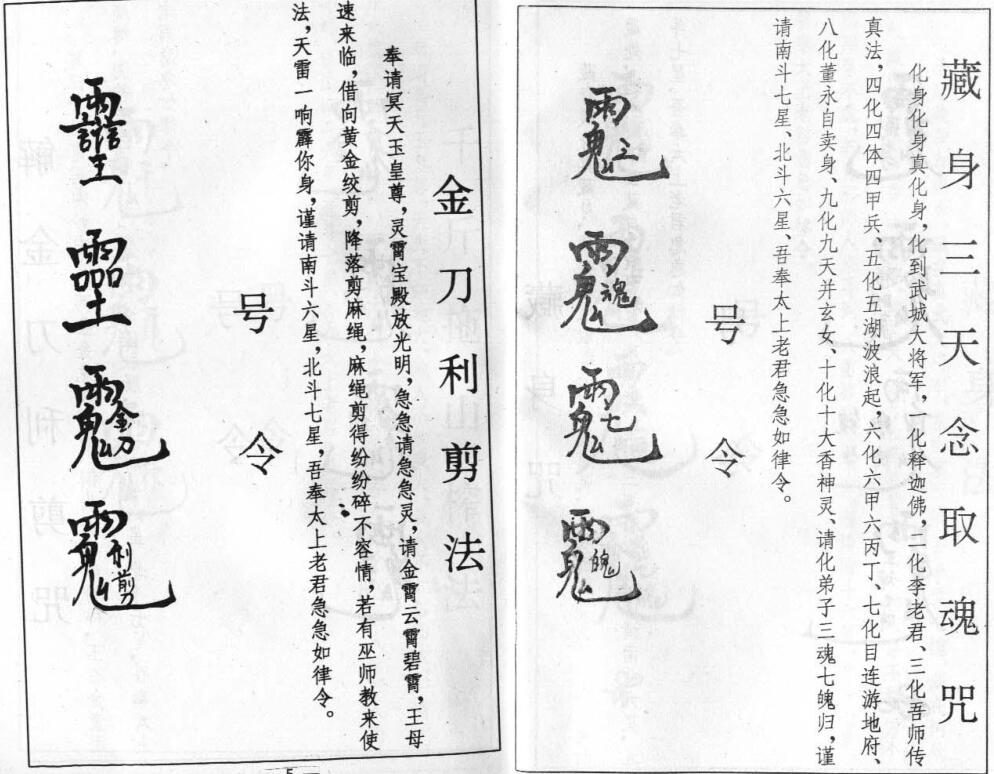 藏身三天念取魂咒
化身化身真化身，化到武城大将军，一化释迦佛，二化李老君、三化吾师传
真法，四化四体四甲兵，五化五湖波浪起，六化六甲六丙丁、七化目连游地府、
八化董永自卖身、九化九天并玄女、十化十大香神灵、请化弟子三魂七魄归，谨
请南斗七星、北斗六星、吾奉太上老君急急如律令。
号令
金刀利剪法
奉请冥天玉皇尊，灵霄宝殿放光明，急急请急急灵，请金霄云霄碧霄，王母
速来临，借向黄金绞剪，降落剪麻绳，麻绳剪得纷纷碎不容情，若有巫师教来使
法，天雷一响霹你身，谨请南斗六星，北斗七星，吾奉太上老君急急如律令。
号令